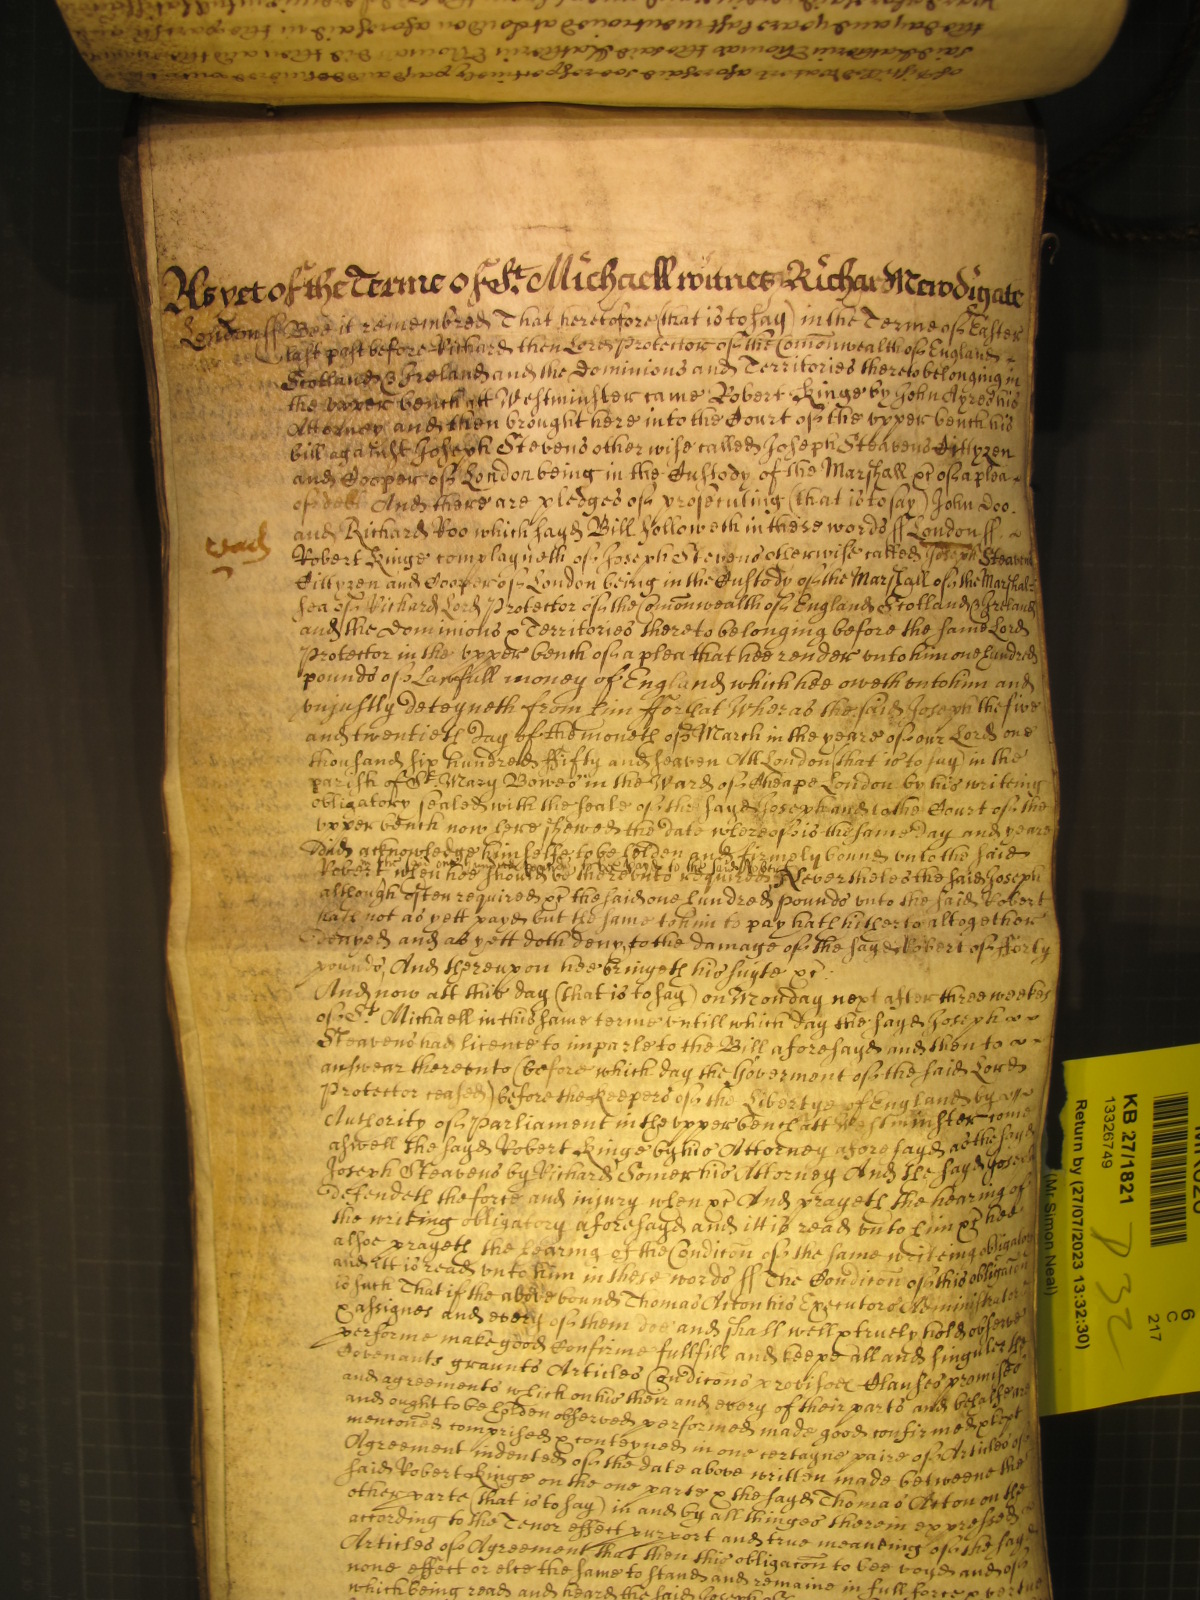 As yet of the Terme of St. Michaell witnes Richard Newdigate
London ss Bee it remembred That heretofore (that is to say) in the Terme of Easter
last past before Richard then Lord Protector of the Comonwealth of England
Scotland & Ireland and the Dominions and Territories thereto belonging in
the upper bench att Westminster came Robert Kinge by John Ayres his
Attorney and then brought here into the Court of the upper bench his
bill against Joseph Stevens otherwise called Joseph Steavens Cittyzen
and Cooper of London being in the Custody of the Marshall &c of a plea
of debt And there are pledges of prosecuting (that is to say) John Doo
and Richard Roo which sayd Bill followeth in these words ss London ss
Robert Kinge complayneth of Joseph Stevens otherwise called Joseph Steavens
Cittyzen and Cooper of London being in the Custody of the Marshall of the Marshal-
sea of Richard Lord Protector of the Comonwealth of England Scotland & Ireland
and the Dominions & Territories thereto belonging before the same Lord
Protector in the upper bench of a plea that hee render unto him one hundred
pounds of Lawfull money of England which hee oweth unto him and
unjustly deteyneth from him ffor that Wheras the said Joseph the five
and twentieth day of the moneth of March in the yeare of our Lord one
thousand six hundred ffifty and seaven Att London (that is to say) in the
parish of St. Mary Bowes in the Ward of Cheape London by his writeing
obligatory sealed with the seale of the sayd Joseph and to the Court of the
upper bench now here shewed the date whereof is the same day and yeare
did acknowledge himselfe to be holden and firmely bound unto the said
Robert when hee should be thereunto required Neverthelesse the said Joseph
although often required &c the said one hundred pounds unto the said Robert
hath not as yett payd but the same to him to pay hath hitherto altogether
denyed and as yett doth deny, to the damage of the sayd Robert of fforty
pounds, And thereupon hee bringeth his suyte &c
And now att this day (that is to say) on Monday next after three weekes
of St. Michaell in this same terme untill which day the sayd Joseph
Steavens had licence to imparle to the Bill aforesayd and then to
answear thereunto (before which day the Goverment of the said Lord
Protector ceased) before the Keepers of the Libertye of England by
Authority of Parliament in the upper bench att Westminster come
aswell the sayd Robert Kinge by his Attorney aforesayd as the sayd
Joseph Steavens by Richard Somer his Attorney And the sayd Joseph
defendeth the force and injury when &c And prayeth the hearing of
the writing obligatory aforesayd and itt is read unto him &c hee
alsoe prayeth the hearing of the Condicon of the same writeing obligatory
and itt is read unto him in these words ss The Condicon of this obligacon
is such That if the above bound Thomas Acton his Executors Administrators
& assignes and every of them doe and shall well & truely hold observe
performe make good Confirme fullfill and keepe all and singuler the
Covenants graunts Articles Condicons provisoes Clauses promises
and agreements which on his their and every of their parts and behalfe are
and ought to be holden observed performed made good confirmed & kept
mentioned comprised & conteyned in one certayne paire of Articles of
Agreement indented of the date above written made betweene the
said Robert Kinge on the one parte & the sayd Thomas Acton on the
other parte (that is to say) in and by all thinges therein expressed
according to the Tenor effect purport and true meaneing of the sayd
Articles of Agreement that then this obligacon to bee voyd and of
none effect or else the same to stand and remaine in full force & vertue
which being read and heard the said Joseph
KB 27/1821
13326749
Return by (27/07/2023 13:32:30)
(Mr Simon Neal)
6
C
217
P 32